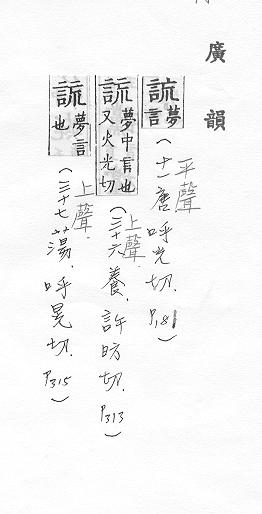 廣韻
䛊 夢言
平聲
(十一唐 呼光切. P.181)
䛊 夢中言也 又火光切
上聲.
(三十六養, 許昉切. P.313)
䛊 夢言也
上聲.
(三十七蕩, 呼晃切. P.315)